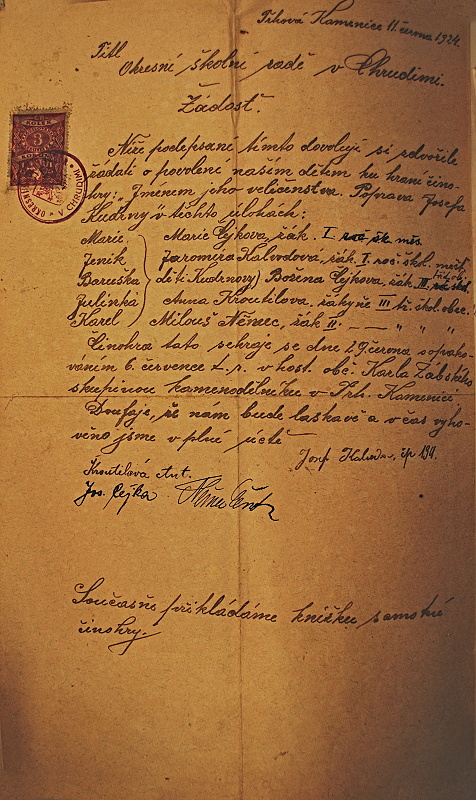 Trhová Kamenice 11. června 1924.
Titl
Okresní školní radě v Chrudimi.
Žádost.
Níže podepsaní tímto dovolují si zdvořile
žádati o povolení našim dětem ku hraní čino-
hry: „Jménem jeho veličenstva. Poprava Josefa
Kudrny" v těchto úlohách:
Marie Marie Cejkova, žák. I. roč. šk. měš.
Jeník Jaromira Kalvodova, žák. I. roč. škol. měšť.
Baruška děti Kudrnovy Božena Cejkova, žák. III.
Julinka Anna Kroutilova, žákyně III tř. škol. obec.
Karel Milouš Němec, žák II. — „ „ „
Činohra tato sehraje se dne 29. června s opako-
vaním 6. července t. r. v host. obč. Karla Zábský
skupinou kamenodělníků v Trh. Kamenici
Doufaje, že nám bude laskavě a v čas vyho-
věno jsme v plné úctě
Josef Kalvoda, čp 191.
Kroutilová Ant.
Jos. Cejka
Současně přikládáme knížku samotné
činohry.
3
V CHRUDIMI